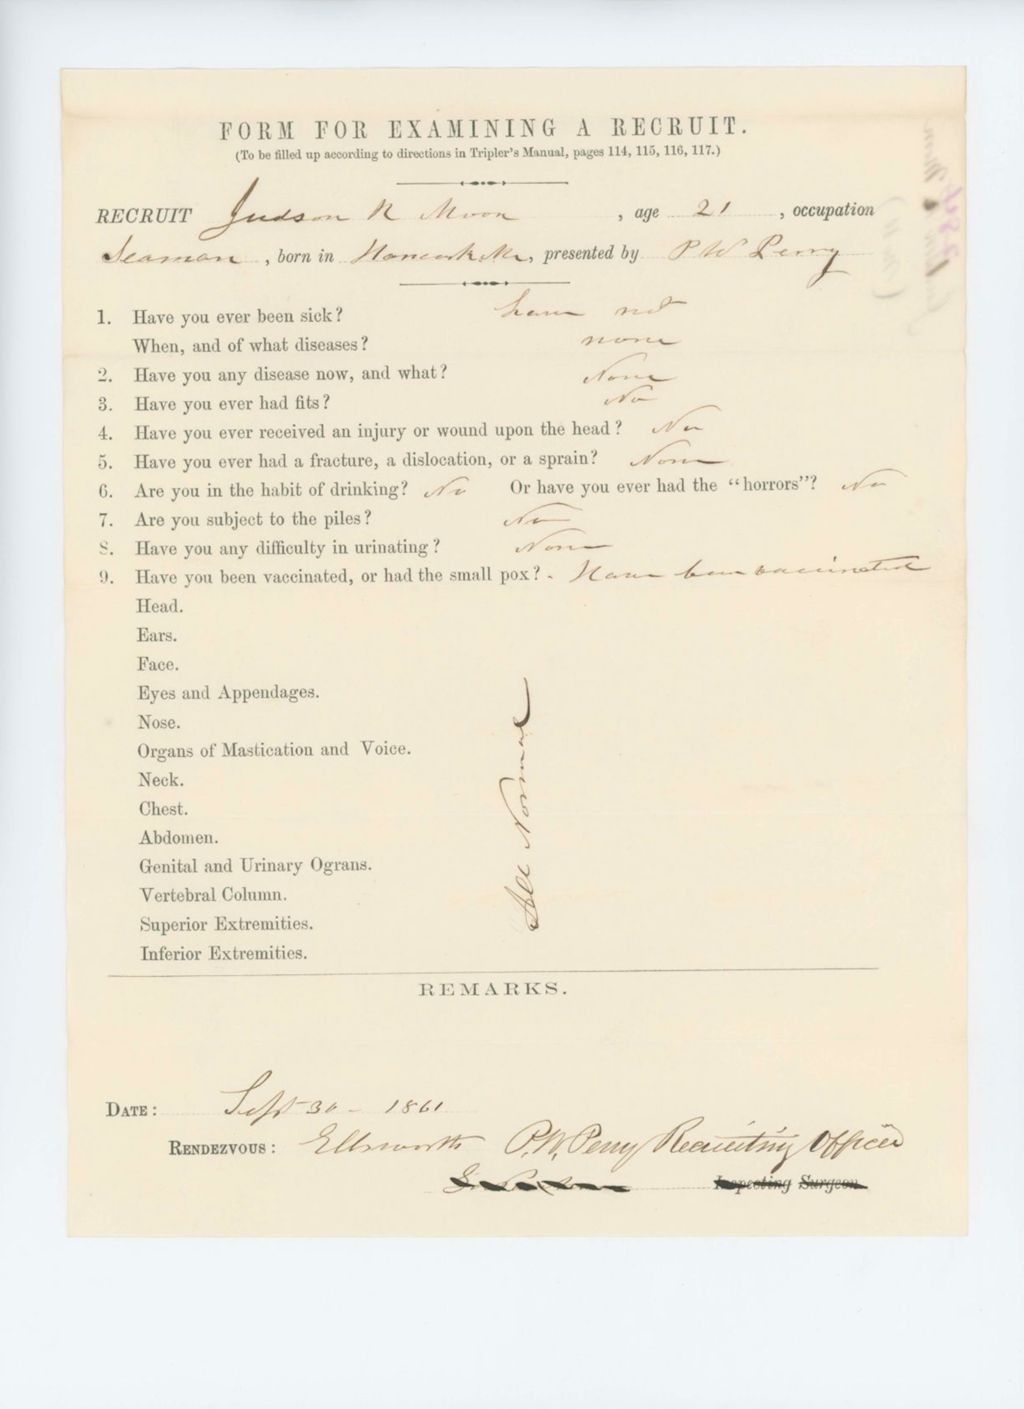 FORM FOR EXAMINING A RECRUIT.
(To be filled up according to directions in Tripler's Manual, pages 114, 115, 116, 117.)
RECRUIT Judson R Moon , age 21 , occupation
Seaman , born in Hancock Me, presented by P W Perry
1. Have you ever been sick? have not
When, and of what diseases? none
2. Have you any disease now, and what? None
3. Have you ever had fits? No
4. Have you ever received an injury or wound upon the head? No
5. Have you ever had a fracture, a dislocation, or a sprain? None
6. Are you in the habit of drinking? No Or have you ever had the "horrors"? No
7. Are you subject to the piles? No
8. Have you any difficulty in urinating? None
9. Have you been vaccinated, or had the small pox? - Have been vaccinated
Head.
Ears.
Face.
Eyes and Appendages.
Nose.
Organs of Mastication and Voice.
Neck.
Chest.
Abdomen.
Genital and Urinary Ograns.
Vertebral Column.
Superior Extremities.
Inferior Extremities.
All Normal
REMARKS.
DATE: Sept 30 - 1861
RENDEZVOUS: Ellsworth P.W. Perry Recruiting Officer
Inspecting Surgeon